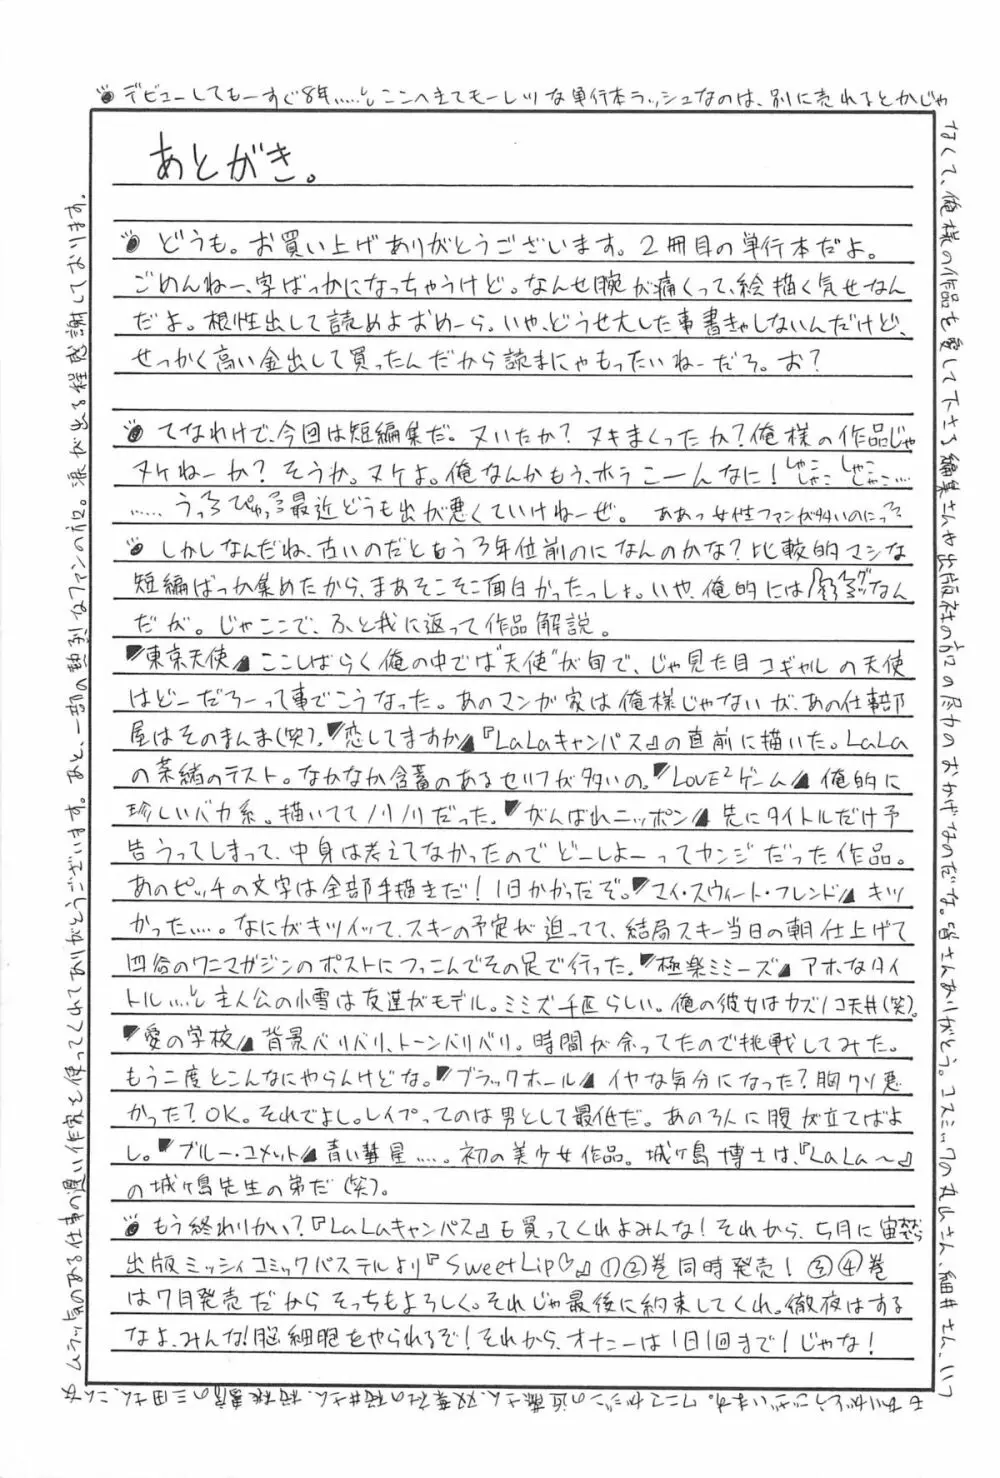 デビューしてもーすぐ8年……。ここへきてモーレツな単行本ラッシュなのは、別に売れるとかじゃ
なくて、俺様の作品を愛して下さる編集さんや出版社の方の尽力のおかげなのだな。皆さんありがとう。コスミックの丸山さん、細井さん、いつ
もありがとうございます。ワニマガジンの近藤さん、双葉社の桜井さん、
の三田さん、こんな
ムラッ気のある仕事の遅い作家を使ってくれてありがとうございます。あと、一部の熱烈なファンの方。涙が出る程感謝しております。
あとがき。
どうも。お買い上げありがとうございます。2冊目の単行本だよ。
ごめんねー、字ばっかになっちゃうけど。なんせ腕が痛くって、絵描く気せなん
だよ。根性出して読めよおめーら。いや、どうせ大した事書きゃしないんだけど、
せっかく高い金出して買ったんだから読まにゃもったいねーだろ。お?
てなわけで、今回は短編集だ。ヌいたか?ヌキまくったか?俺様の作品じゃ
ヌケねーか?そうか。ヌケよ。俺なんかもう、ホラこーんなに!しゃこしゃこしゃこじゃこ……
……うっろぴゅっろ最近どうも出が悪くていけねーぜ。ああっ女性ファンが多いのにっ
しかしなんだね、古いのだともう3年位前のになんのかな?比較的マシな
短編ばっか集めたから、まあそこそこ面白かったっしょ。いや、俺的にはなん
だが。じゃここで、ふと我に返って作品解説。
東京天使 ここしばらく俺の中では“天使”が旬で、じゃ見た目コギャルの天使
はどーだろーって事でこうなった。あのマンガ家は俺様じゃないが、あの仕事部
屋はそのまんま(笑)。恋してますか『LaLaキャンパス』の直前に描いた。LaLa
の茶緒のテスト。なかなか含蓄のあるセリフが多いの。LOVE²ゲーム 俺的に
珍しいバカ系。描いててノリノリだった。がんばれニッポン 先にタイトルだけ予
告うってしまって、中身は考えてなかったのでどーしよーってカンジだった作品。
あのピッチの文字は全部手描きだ!1日かかったぞ。マイ・スウィート・フレンド キツ
かった……。なにがキツイッて、スキーの予定が迫ってて、結局スキー当日の朝仕上げて
四谷のワニマガジンのポストにつっこんでその足で行った。極楽ミミーズ アホなタイ
トル……。主人公の小雪は友達がモデル。ミミズ千匹らしい。俺の彼女はカズノコ天井(笑)。
愛の学校 背景バリバリ、トーンバリバリ。時間が余ってたので挑戦してみた。
もう二度とこんなにやらんけどな。ブラックホール イヤな気分になった?胸クソ悪
かった?OK。それでよし。レイプってのは男として最低だ。あの3人に腹が立てばよ
し。ブルー・コメット 青い彗星……。初の美少女作品。城ヶ島博士は、『LaLa〜』
の城ヶ島先生の弟だ(笑)。
もう終わりかい?『LaLaキャンパス』も買ってくれよみんな!それから、5月に宙
出版ミッシィコミックパステルより『Sweet Lip♡』①②巻同時発売!③④巻
は7月発売だからそっちもよろしく。それじゃ最後に約束してくれ。徹夜はする
なよ、みんな!脳細胞をやられるぞ!それから、オナニーは1日1回まで!じゃな!